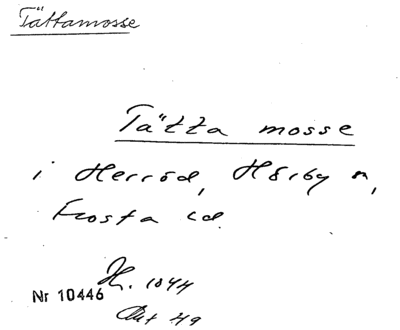 Tättamosse
Tätta mosse
i Herröd, Hörby n,
Frosta hd.
H. 1044
Nr 10446
Akt 49